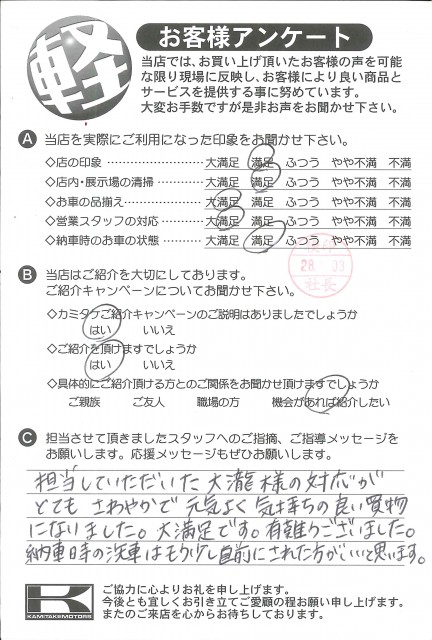 軽
お客様アンケート
当店では、お買い上げ頂いたお客様の声を可能
な限り現場に反映し、お客様により良い商品と
サービスを提供する事に努めています。
大変お手数ですが是非お声をお聞かせ下さい。
A 当店を実際にご利用になった印象をお聞かせ下さい。
◇店の印象 ………………… 大満足 満足 ふつう やや不満 不満
◇店内・展示場の清掃 ……… 大満足 満足 ふつう やや不満 不満
◇お車の品揃え …………… 大満足 満足 ふつう やや不満 不満
◇営業スタッフの対応 ……… 大満足 満足 ふつう やや不満 不満
◇納車時のお車の状態 ……… 大満足 満足 ふつう やや不満 不満
28. 03
社長
B 当店はご紹介を大切にしております。
ご紹介キャンペーンについてお聞かせ下さい。
◇カミタケご紹介キャンペーンのご説明はありましたでしょうか
はい いいえ
◇ご紹介を頂けますでしょうか
はい いいえ
◇具体的にご紹介頂ける方とのご関係をお聞かせ頂けますでしょうか
ご親族 ご友人 職場の方 機会があれば紹介したい
C 担当させて頂きましたスタッフへのご指摘、ご指導メッセージを
お願いします。応援メッセージもぜひお願いします。
担当していただいた大瀧様の対応が
とても さわやかで 元気よく 気持ちの良い買物
になりました。大満足です。有難うございました。
納車時の洗車はもう少し直前にされた方がいいと思います。
K
KAMITAKEMOTORS
ご協力に心よりお礼を申し上げます。
今後とも宜しくお引き立てご愛顧の程お願い申し上げます。
またのご来店を心からお待ちしております。